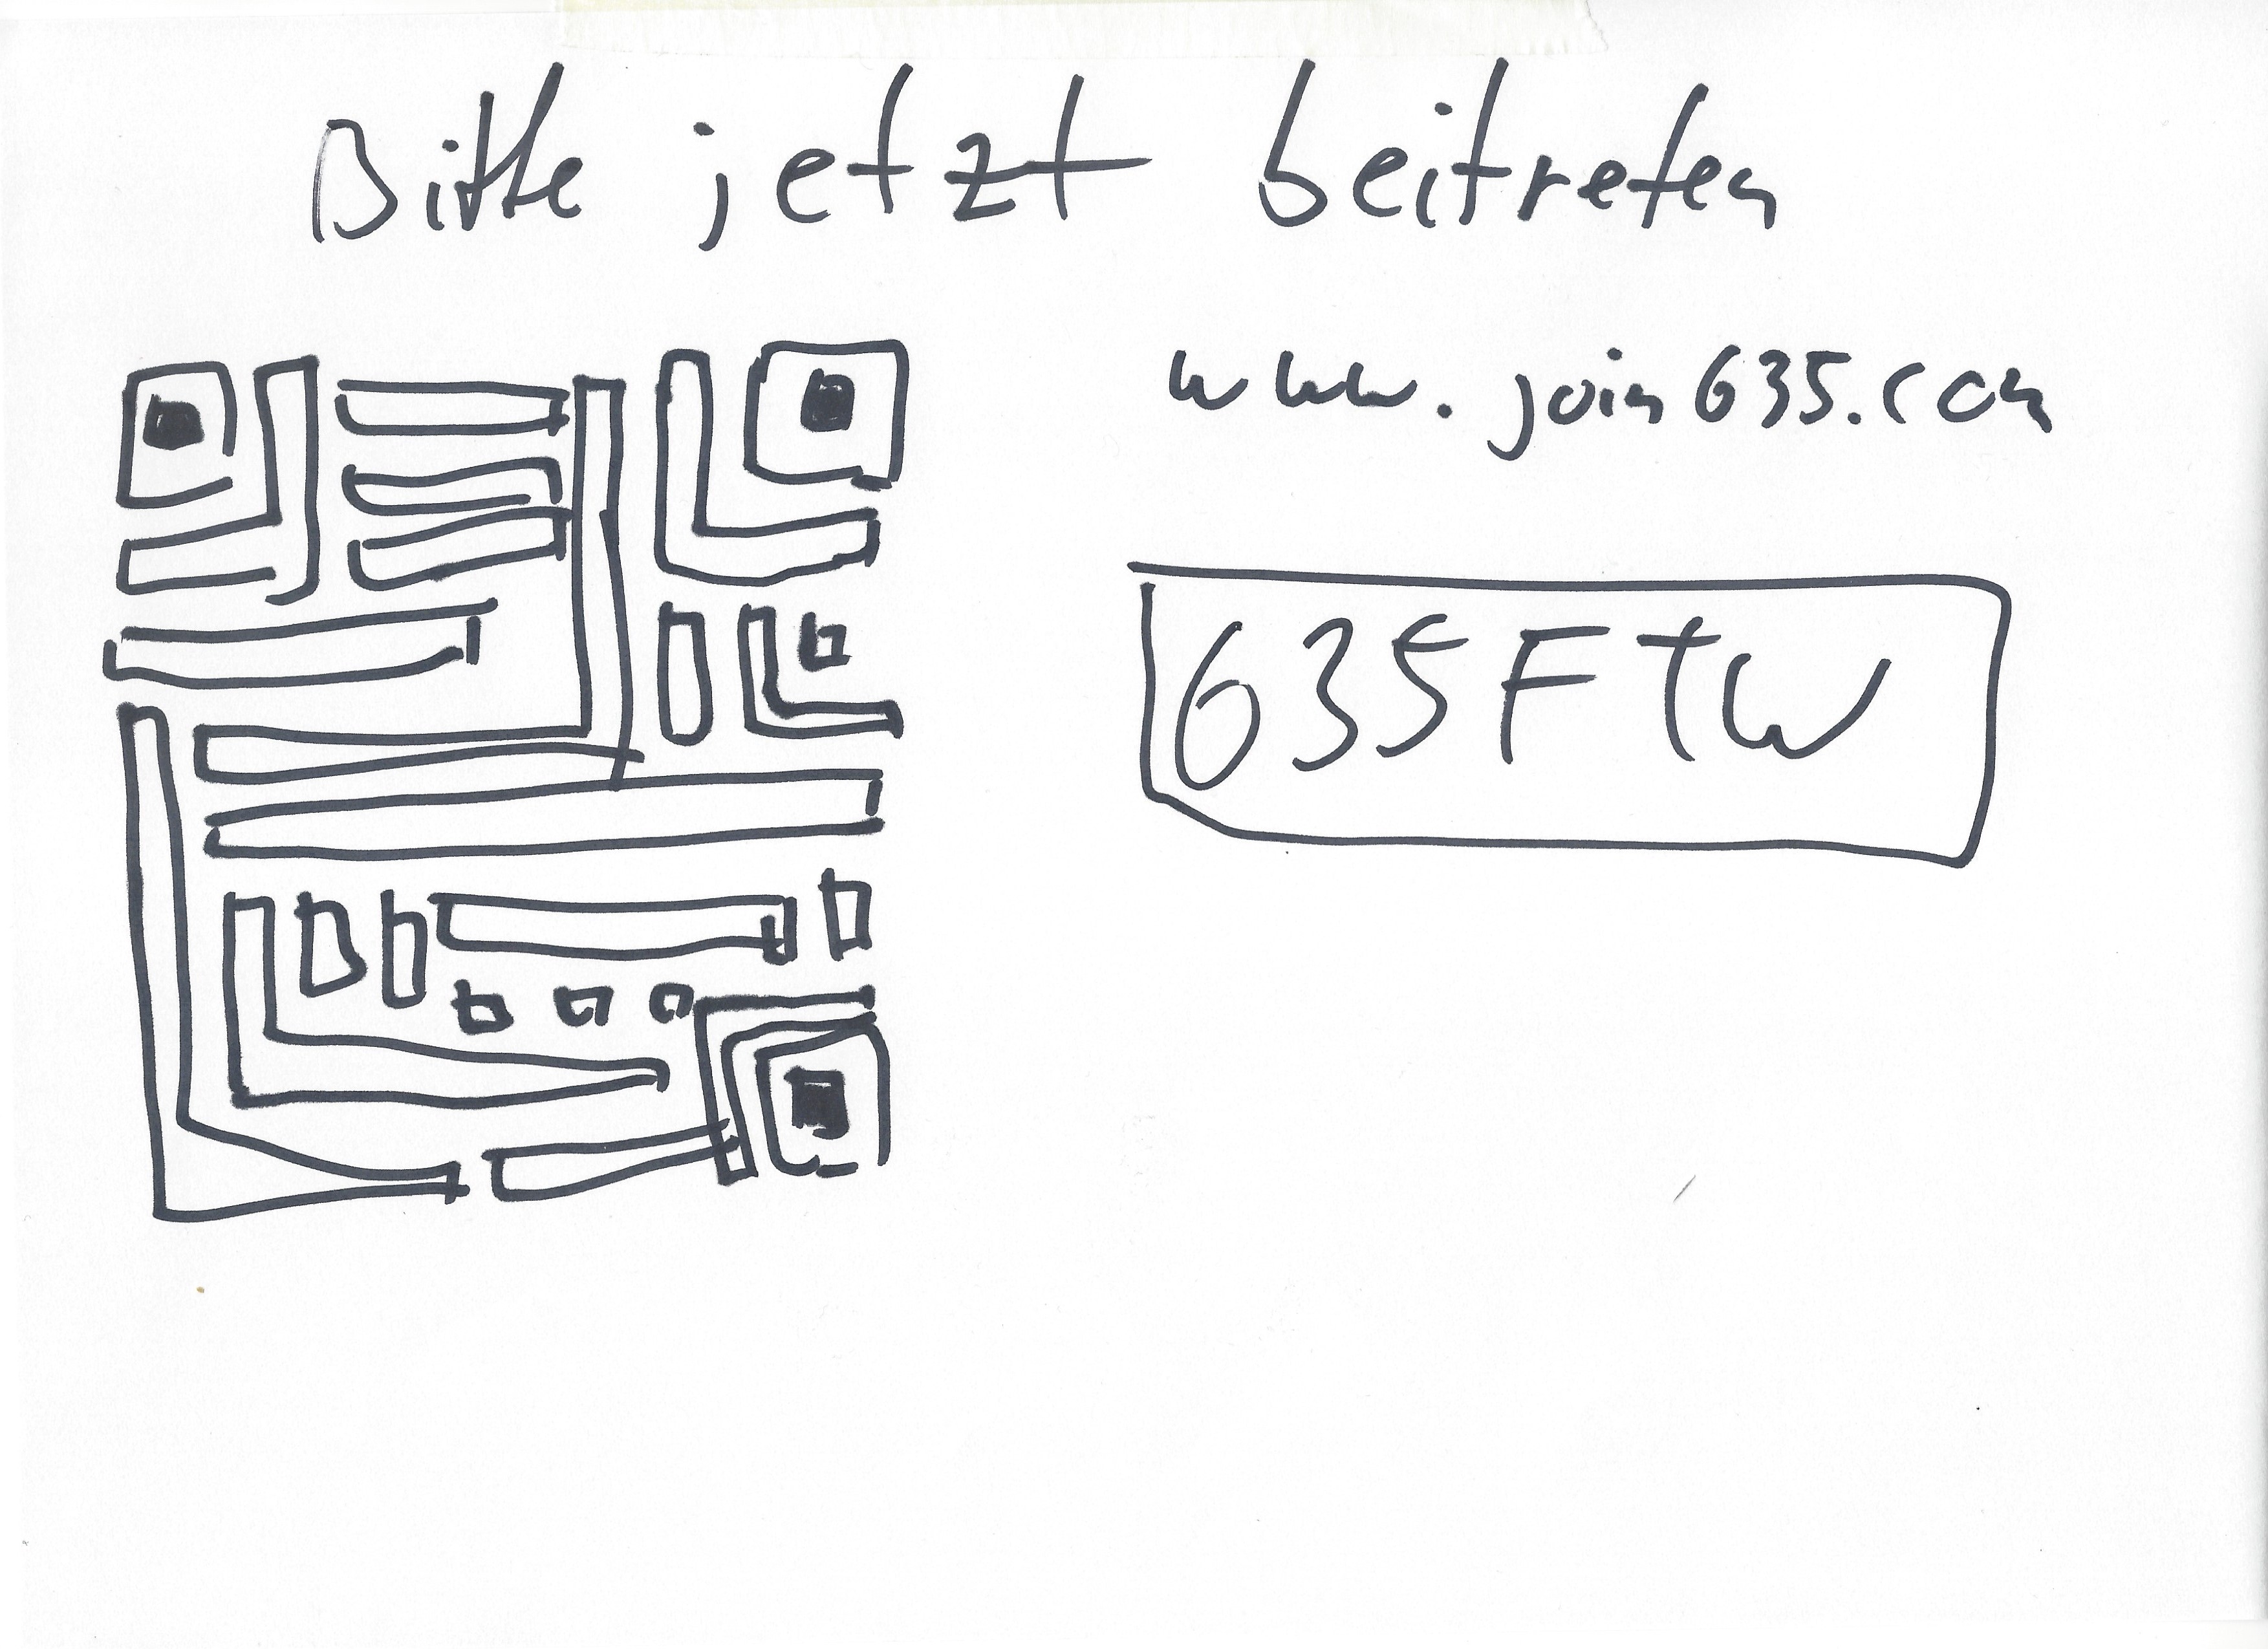 Bitte jetzt beitreten
www.join635.com
635FTW